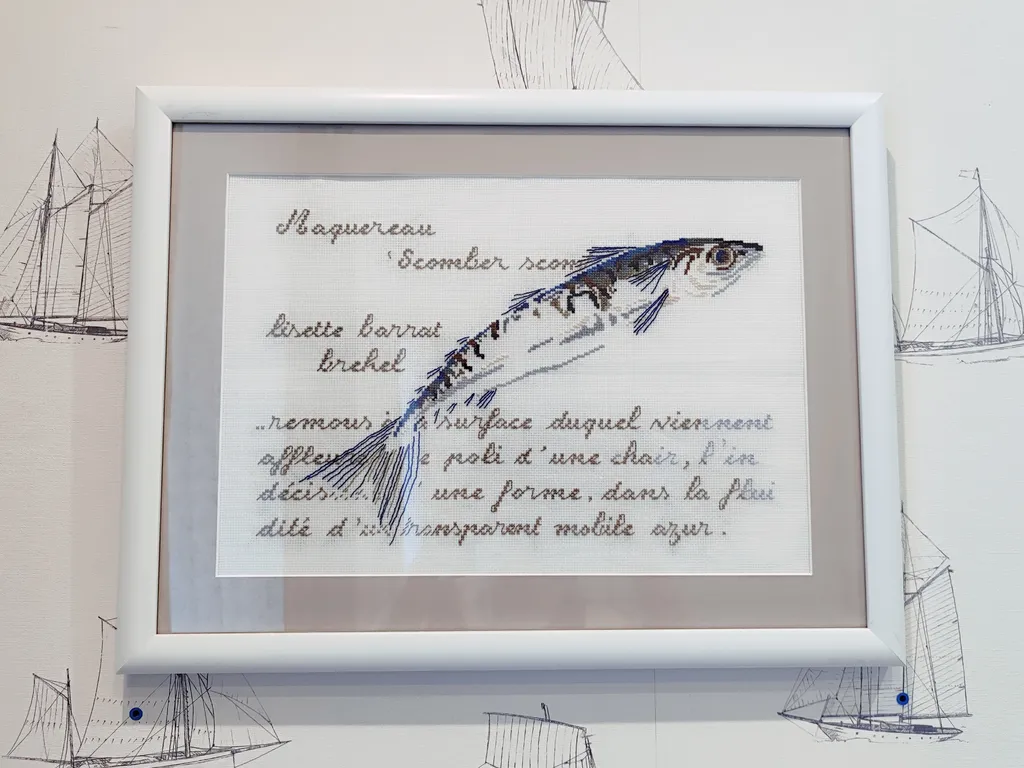 Maquereau
Scomber scom
lisette barrat
brehel
..remous à surface duquel viennent
affleu e poli d'une chair, l'in
décis une forme, dans la flui
dité d'un transparent mobile azur.